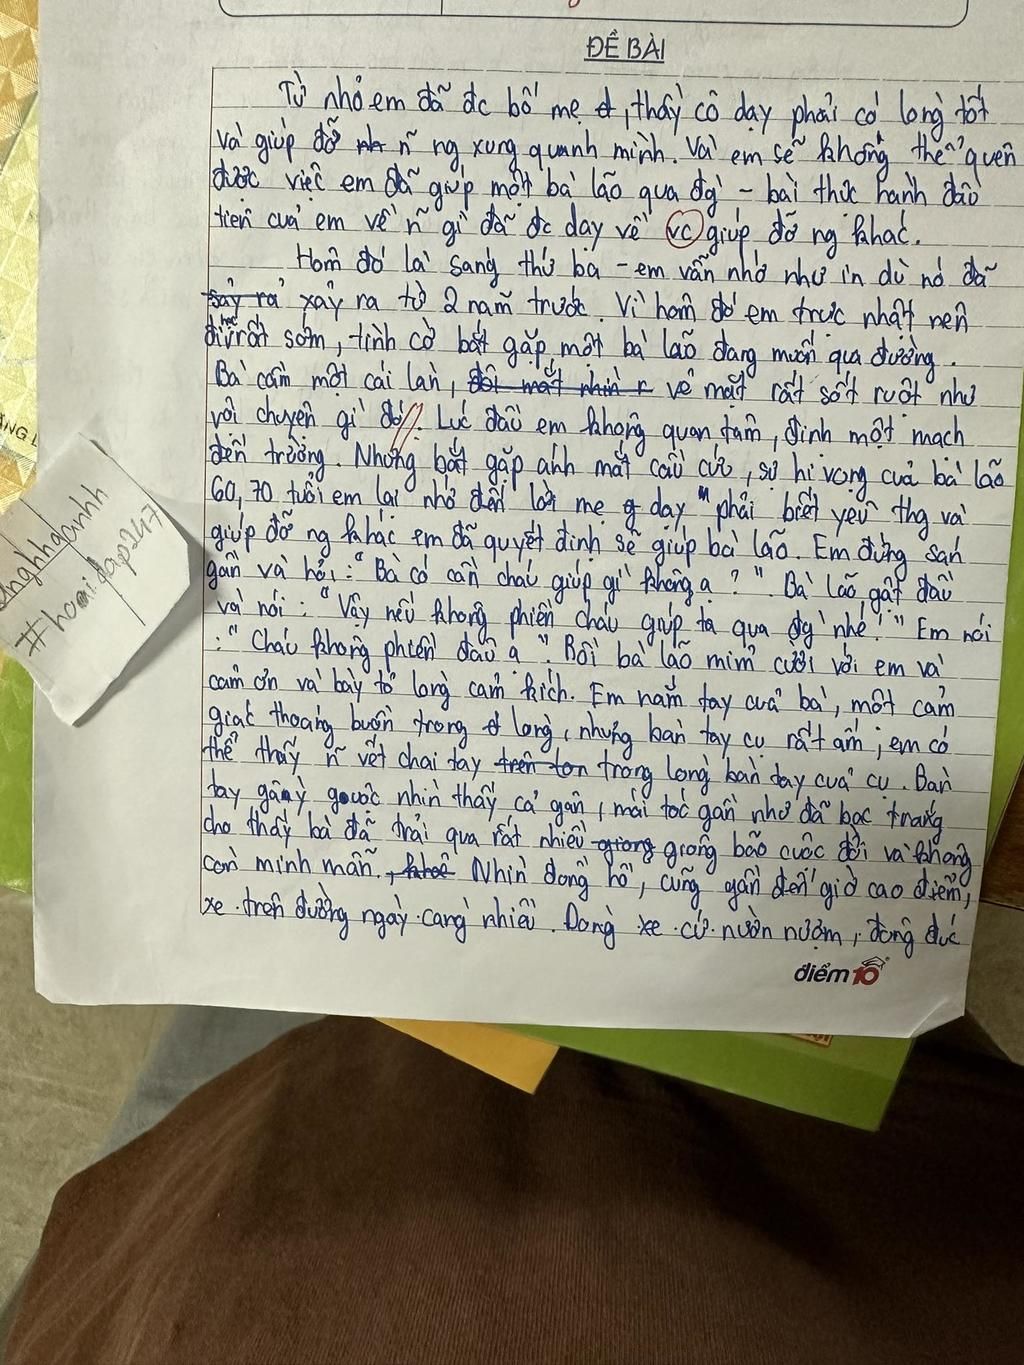 ĐỀ BÀI
Từ nhỏ em đã đc bố mẹ, thầy cô dạy phải có lòng tốt
và giúp đỡ ~n ng xung quanh mình. Và em sẽ không thể quên
được việc em đã giúp một bà lão qua đg` – bài thực hành đầu
tiên của em về ~n gì đã đc dạy về vc giúp đỡ ng khác.
Hôm đó là sáng thứ ba – em vẫn nhớ như in dù nó đã
xảy ra từ 2 năm trước. Vì hôm đó em trực nhật nên
đi học rất sớm, tình cờ bắt gặp một bà lão đang muốn qua đường.
Bà cầm một cái làn, vẻ mặt rất sốt ruột như
vội chuyện gì đó. Lúc đầu em không quan tâm, định một mạch
đến trường. Nhưng bắt gặp ánh mắt cầu cứu, sự hi vọng của bà lão
60, 70 tuổi em lại nhớ đến lời mẹ dạy "phải biết yêu thg và
giúp đỡ ng khác em đã quyết định sẽ giúp bà lão. Em đứng sán
gần và hỏi: "Bà có cần cháu giúp gì không ạ?". Bà lão gật đầu
và nói: "Vậy nếu không phiền cháu giúp ta qua đg` nhé!" Em nói
: "Cháu không phiền đâu ạ". Rồi bà lão mỉm cười với em và
cảm ơn và bày tỏ lòng cảm kích. Em nắm tay của bà, một cảm
giác thoáng buồn trong lòng, nhưng bàn tay cụ rất ấm, em có
thể thấy ~n vết chai tay trong lòng bàn tay của cụ. Bàn
tay gầy guộc nhìn thấy cả gân, mái tóc gần như đã bạc trắng
cho thấy bà đã trải qua rất nhiều giông bão cuộc đời và không
còn minh mẫn. Nhìn đồng hồ, cũng gần đến giờ cao điểm,
xe trên đường ngày càng nhiều. Dòng xe cứ nườn nượm, đông đúc
điểm10
#hoidap247